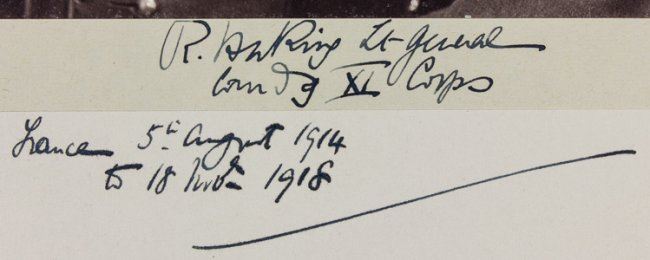 R. Haking Lt-General
Comdg XI Corps
France 5th August 1914
to 18 Novbr 1918